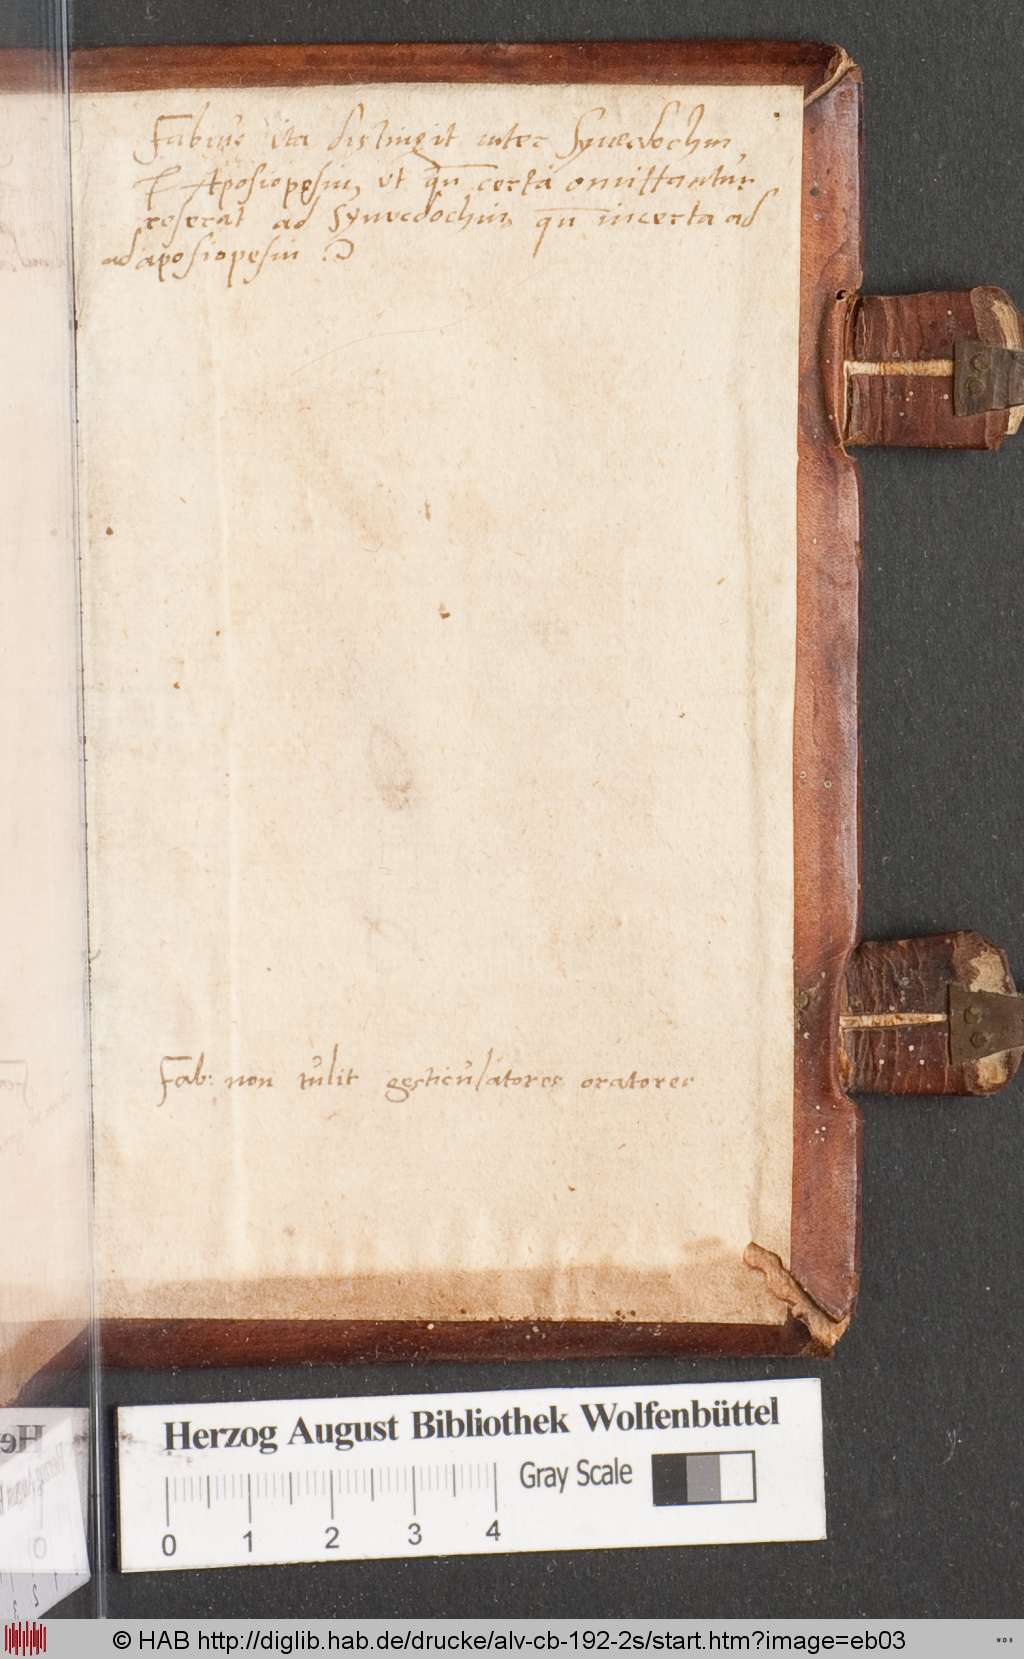 Fabius ita distingit inter Synecdochin
Aposiopesin, ut qn certa omittantur
referat ad Synecdochin, qn incerta ad
ad aposiopesin
Fab: non tulit gesticulatores oratores
Herzog August Bibliothek Wolfenbüttel
Gray Scale
0 1 2 3 4
© HAB http://diglib.hab.de/drucke/alv-cb-192-2s/start.htm?image=eb03